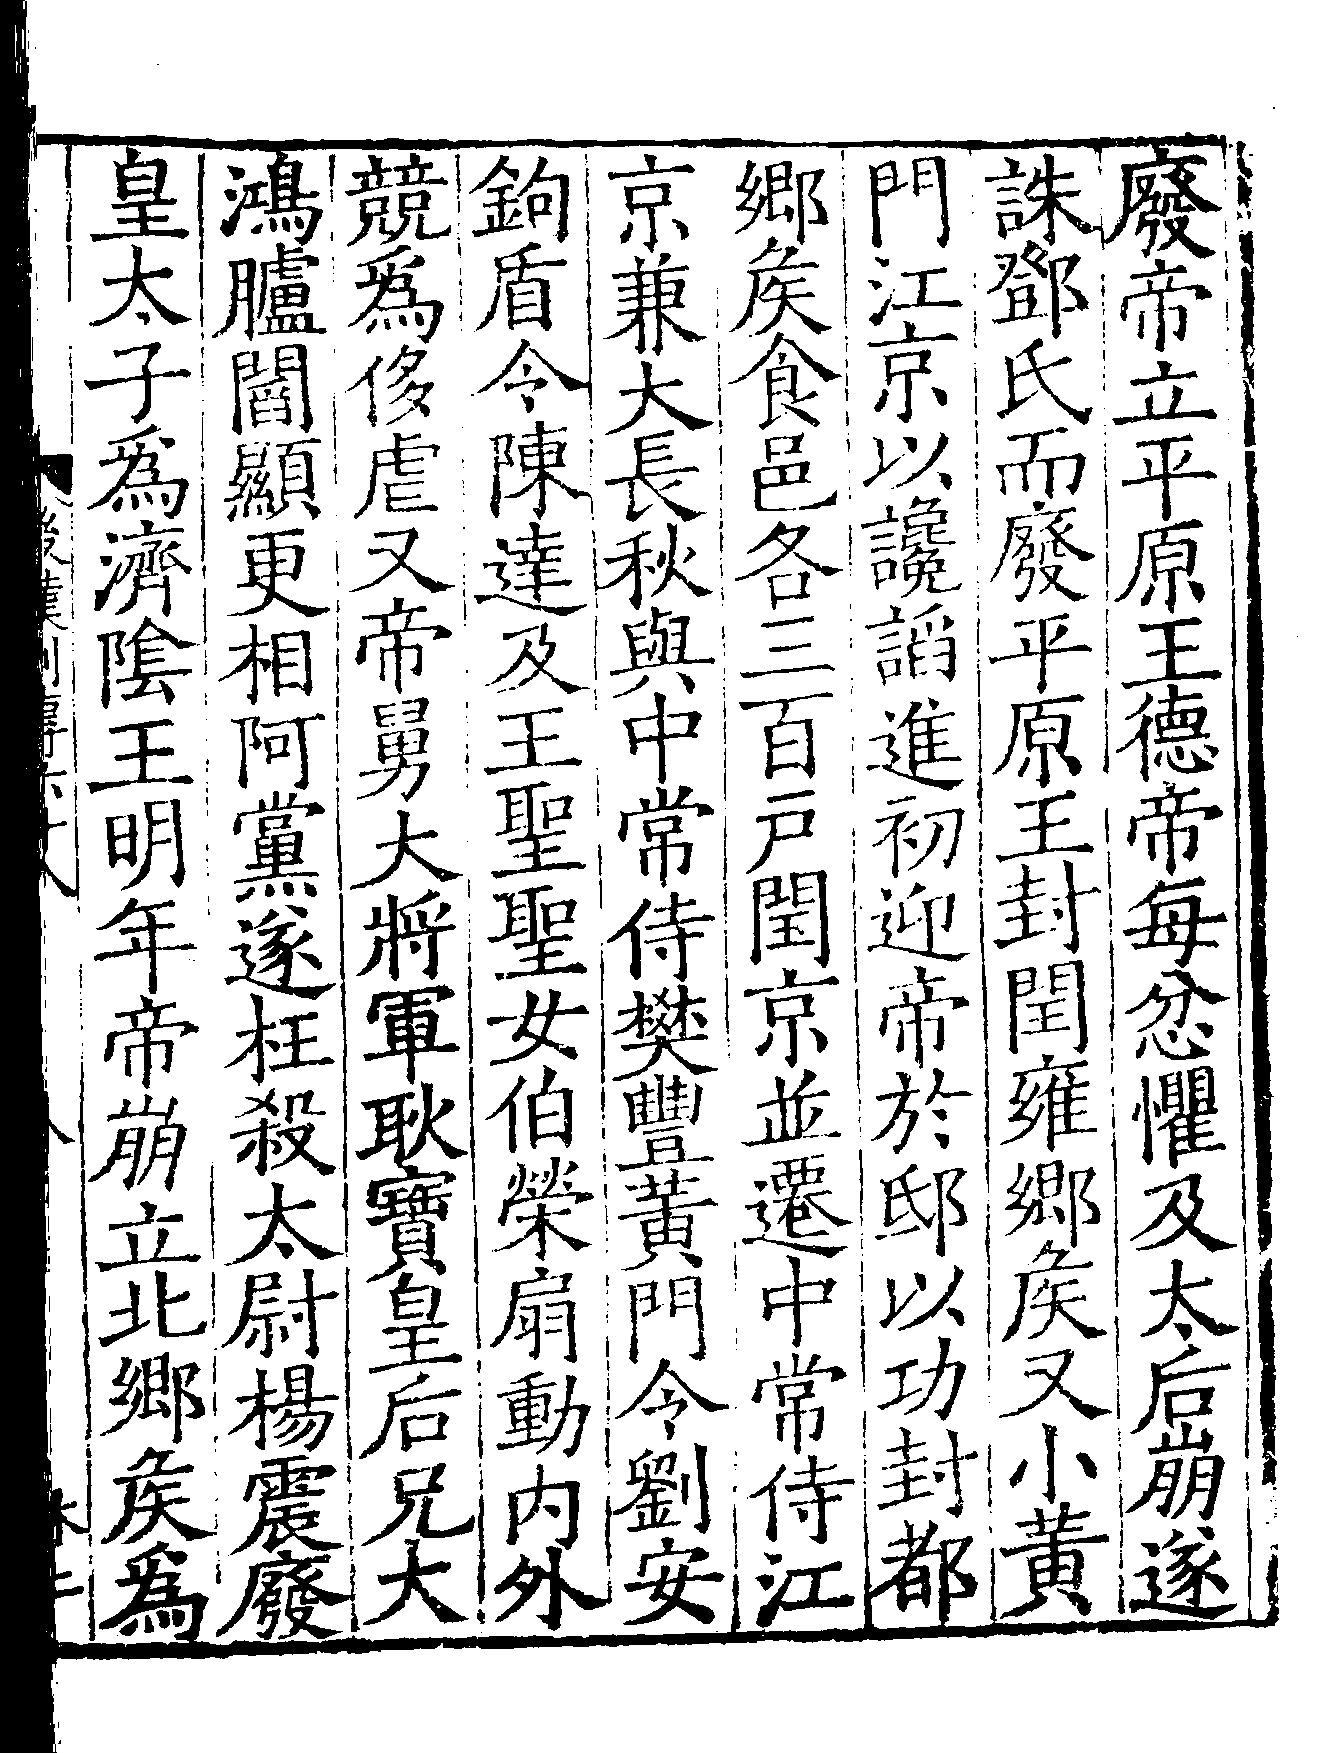 廢帝立平原王德帝每忿懼及太后崩遂
誅鄧氏而廢平原王封閏雍鄉矦又小黃
門江京以讒諂進初迎帝於邸以功封都
鄉矦食邑各三百戸閏京並遷中常侍江
京兼大長秋與中常侍樊豐黃門令劉安
鉤盾令陳達及王聖聖女伯榮扇動内外
競爲侈虐又帝舅大將軍耿寶皇后兄大
鴻臚閻顯更相阿黨遂枉殺太尉楊震廢
皇太子爲濟陰王明年帝崩立北鄉矦爲
後漢列傳六十八